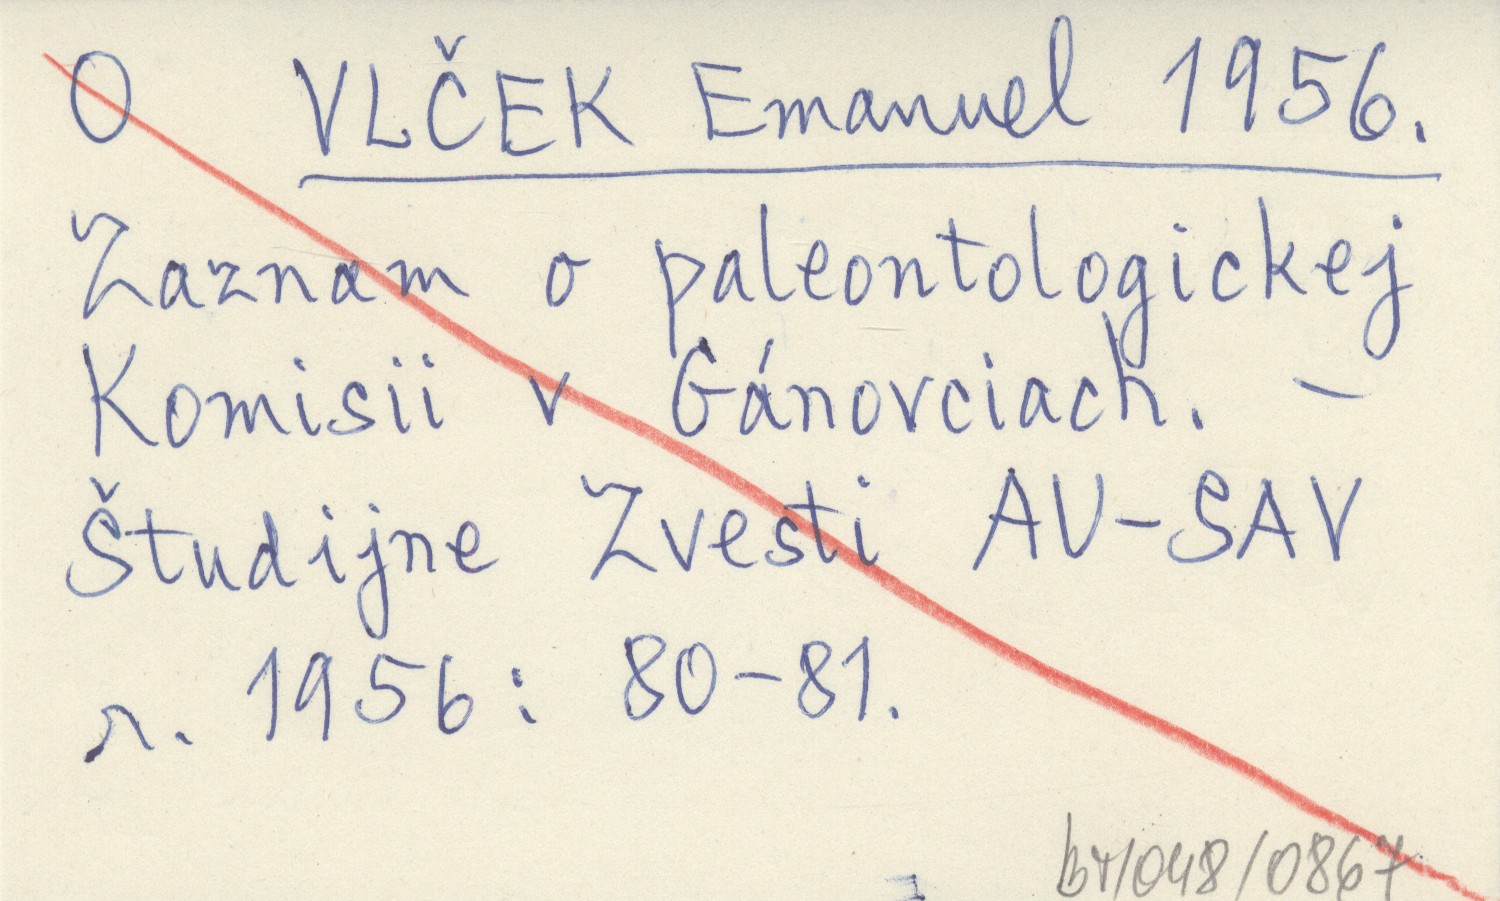 O VLČEK Emanuel 1956.
Zaznam o paleontologickej
Komisii v Gánovciach. –
Študijne Zvesti AU-SAV
r. 1956: 80-81.
br/048/0867